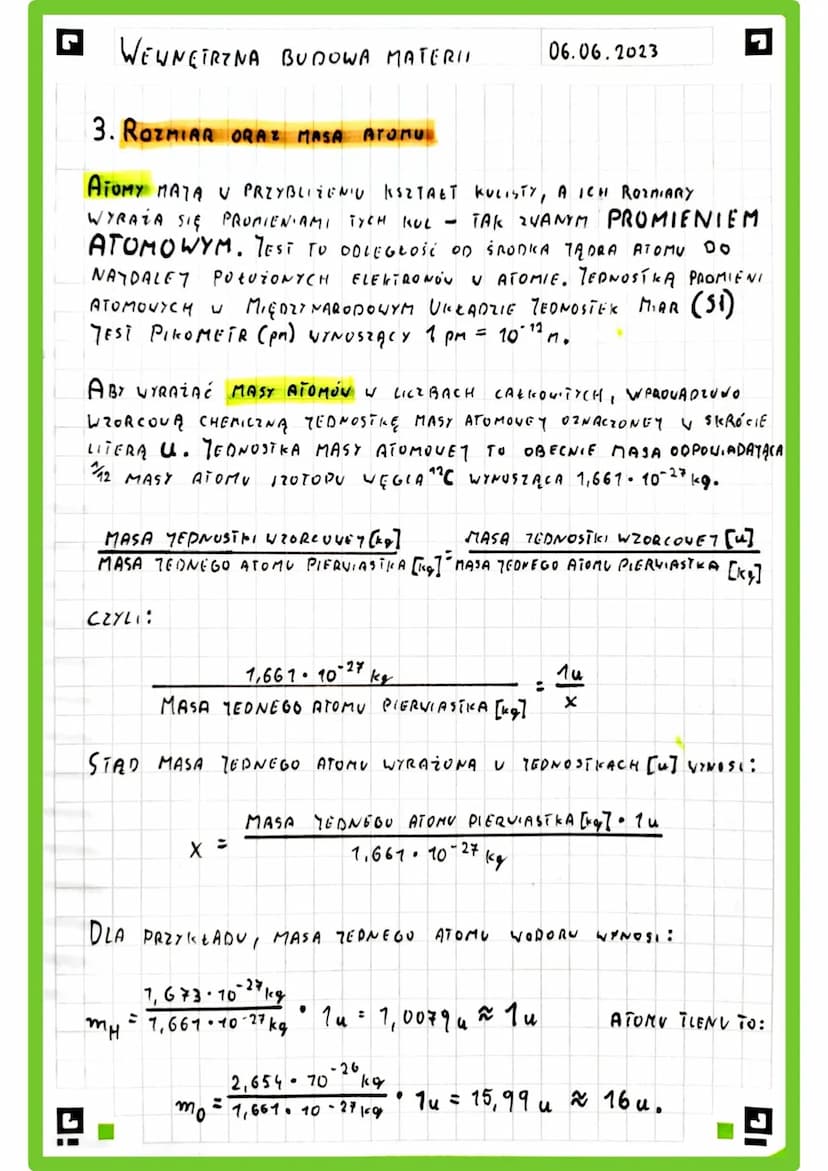 WEWNĘTRZNA BUDOWA MATERII 06.06.2023
3. ROZMIAR ORAZ MASA ATOMU
ATOMY MAJĄ W PRZYBLIŻENIU KSZTAŁT KULISTY, A ICH ROZMIARY
WYRAŻA SIĘ PROMIENIAMI TYCH KUL – TAK ZWANYM PROMIENIEM
ATOMOWYM. JEST TO ODLEGŁOŚĆ OD ŚRODKA JĄDRA ATOMU DO
NAJDALEJ POŁOŻONYCH ELEKTRONÓW W ATOMIE. JEDNOSTKĄ PROMIENI
ATOMOWYCH W MIĘDZYNARODOWYM UKŁADZIE JEDNOSTEK MIAR (SI)
JEST PIKOMETR (pm) WYNOSZĄCY 1 pm = 10⁻¹² m.
ABY WYRAŻAĆ MASY ATOMÓW W LICZBACH CAŁKOWITYCH, WPROWADZONO
WZORCOWĄ CHEMICZNĄ JEDNOSTKĘ MASY ATOMOWEJ OZNACZONEJ W SKRÓCIE
LITERĄ U. JEDNOSTKA MASY ATOMOWEJ TO OBECNIE MASA ODPOWIADAJĄCA
1/12 MASY ATOMU IZOTOPU WĘGLA ¹²C WYNOSZĄCA 1,661 · 10⁻²⁷ kg.
MASA JEDNOSTKI WZORCOWEJ [kg] / MASA JEDNEGO ATOMU PIERWIASTKA [kg] = MASA JEDNOSTKI WZORCOWEJ [u] / MASA JEDNEGO ATOMU PIERWIASTKA [kg]
CZYLI:
1,661 · 10⁻²⁷ kg / MASA JEDNEGO ATOMU PIERWIASTKA [kg] = 1u / x
STĄD MASA JEDNEGO ATOMU WYRAŻONA W JEDNOSTKACH [u] WYNOSI:
x = MASA JEDNEGO ATOMU PIERWIASTKA [kg] · 1u / 1,661 · 10⁻²⁷ kg
DLA PRZYKŁADU, MASA JEDNEGO ATOMU WODORU WYNOSI:
m_H = 1,673 · 10⁻²⁷ kg / 1,661 · 10⁻²⁷ kg · 1u = 1,0079 u ≈ 1u ATOMU TLENU TO:
m_O = 2,654 · 10⁻²⁶ kg / 1,661 · 10⁻²⁷ kg · 1u = 15,99 u ≈ 16u.